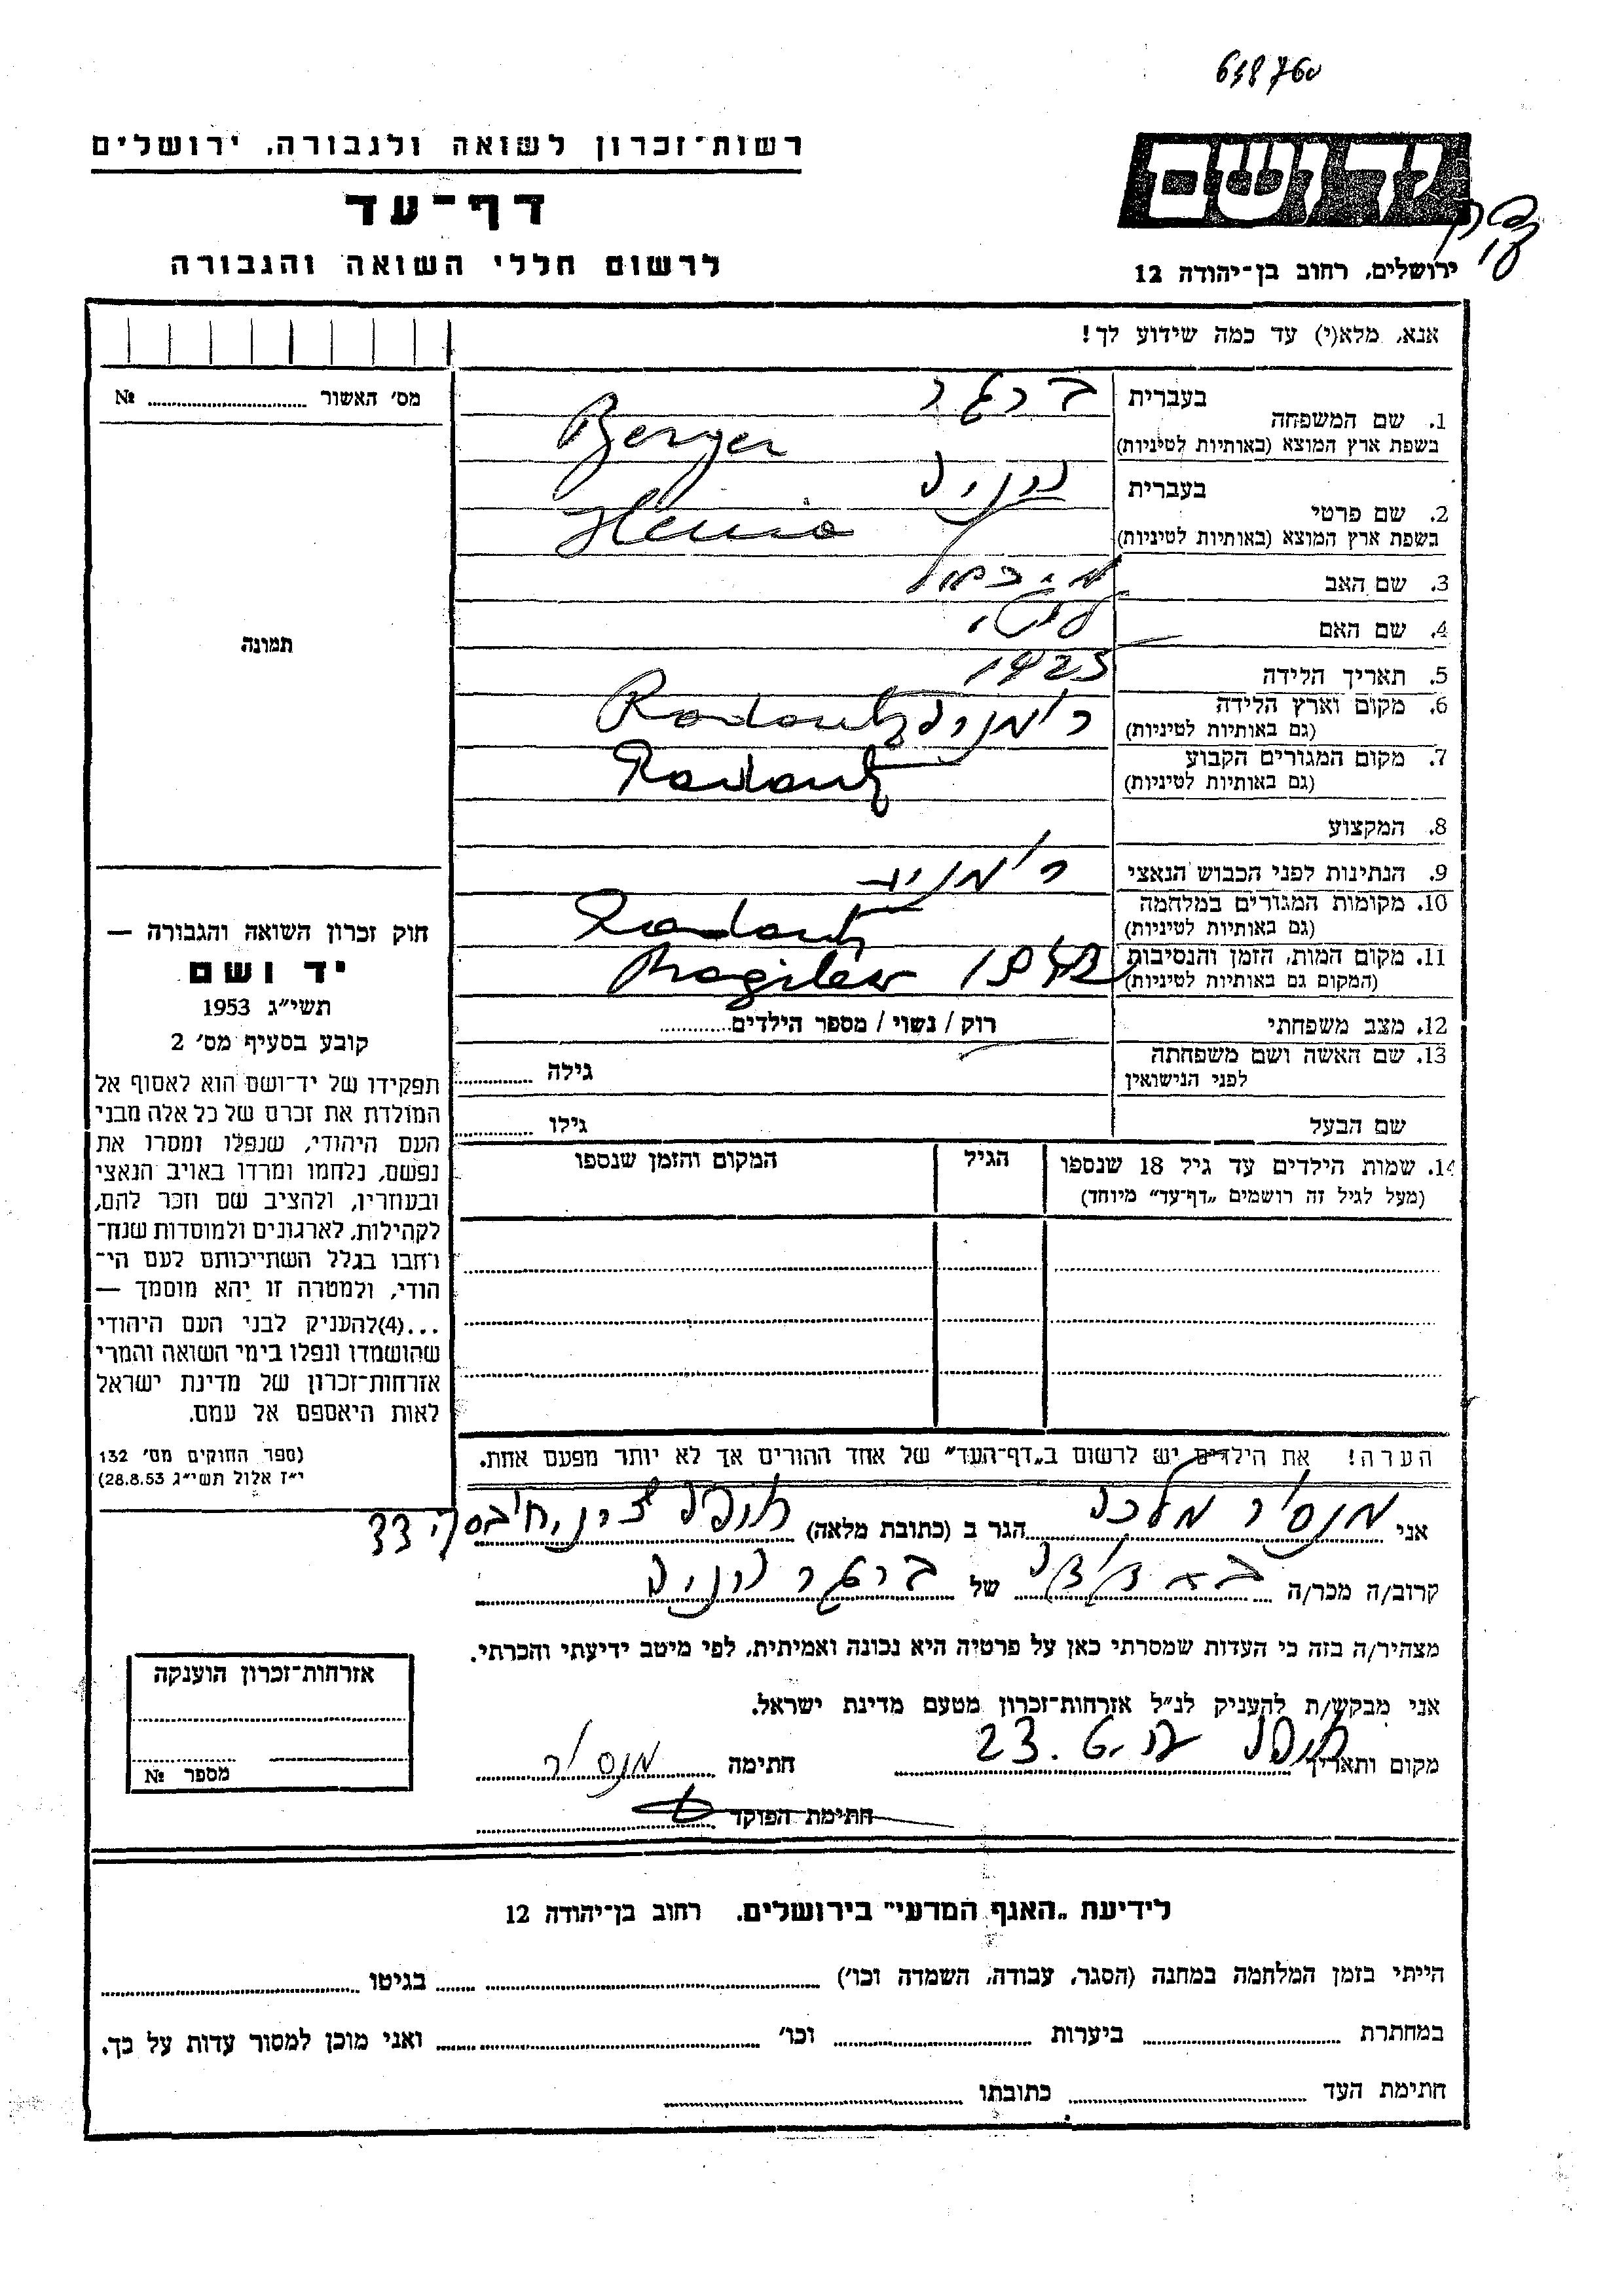 638760
רשות־זכרון לשואה ולגבורה, ירושלים
דף־עד
לרשום חללי השואה והגבורה
יד ושם
ירושלים, רחוב בן־יהודה 12
אנא, מלא(י) עד כמה שידוע לך!
מס׳ האשור № 
1. שם המשפחה
בעברית ברגר
בשפת ארץ המוצא (באותיות לטיניות) Berger
2. שם פרטי
בעברית
בשפת ארץ המוצא (באותיות לטיניות)
3. שם האב מיכאל
4. שם האם
5. תאריך הלידה 1925
6. מקום וארץ הלידה
(גם באותיות לטיניות) רומניה Radautz
7. מקום המגורים הקבוע
(גם באותיות לטיניות) Radautz
8. המקצוע
9. הנתינות לפני הכבוש הנאצי רומניה
10. מקומות המגורים במלחמה
(גם באותיות לטיניות) Radautz
11. מקום המות, הזמן והנסיבות
(המקום גם באותיות לטיניות) Mogilew 1942
12. מצב משפחתי רוק / נשוי / מספר הילדים
13. שם האשה ושם משפחתה
לפני הנישואין גילה
שם הבעל גילו
14. שמות הילדים עד גיל 18 שנספו
(מעל לגיל זה רושמים „דף־עד״ מיוחד)
הגיל
המקום והזמן שנספו
הערה! את הילדים יש לרשום ב„דף־העד״ של אחד ההורים אך לא יותר מפעם אחת.
תמונה
חוק זכרון השואה והגבורה —
יד ושם
תשי״ג 1953
קובע בסעיף מס׳ 2
תפקידו של יד־ושם הוא לאסוף אל
המולדת את זכרם של כל אלה מבני
העם היהודי, שנפלו ומסרו את
נפשם, נלחמו ומרדו באויב הנאצי
ובעוזריו, ולהציב שם וזכר להם,
לקהילות, לארגונים ולמוסדות שנח־
רחבו בגלל השתייכותם לעם הי־
הודי, ולמטרה זו יהא מוסמך —
...(4)להעניק לבני העם היהודי
שהושמדו ונפלו בימי השואה והמרי
אזרחות־זכרון של מדינת ישראל
לאות היאספם אל עמם.
(ספר החוקים מס׳ 132
י״ז אלול תשי״ג 28.8.53)
אני מנסור מלכה הגר ב (כתובת מלאה) חיפה
קרוב/ה מכר/ה של ברגר
מצהיר/ה בזה כי העדות שמסרתי כאן על פרטיה היא נכונה ואמיתית, לפי מיטב ידיעתי והכרתי.
אני מבקש/ת להעניק לנ״ל אזרחות־זכרון מטעם מדינת ישראל.
מקום ותאריך חיפה 23.6. חתימה מנסור
חתימת הפוקד
אזרחות־זכרון הוענקה
מספר №
לידיעת „האגף המדעי״ בירושלים, רחוב בן־יהודה 12
הייתי בזמן המלחמה במחנה (הסגר, עבודה, השמדה וכו׳) בגיטו
במחתרת ביערות וכו׳ ואני מוכן למסור עדות על כך.
חתימת העד כתובתו